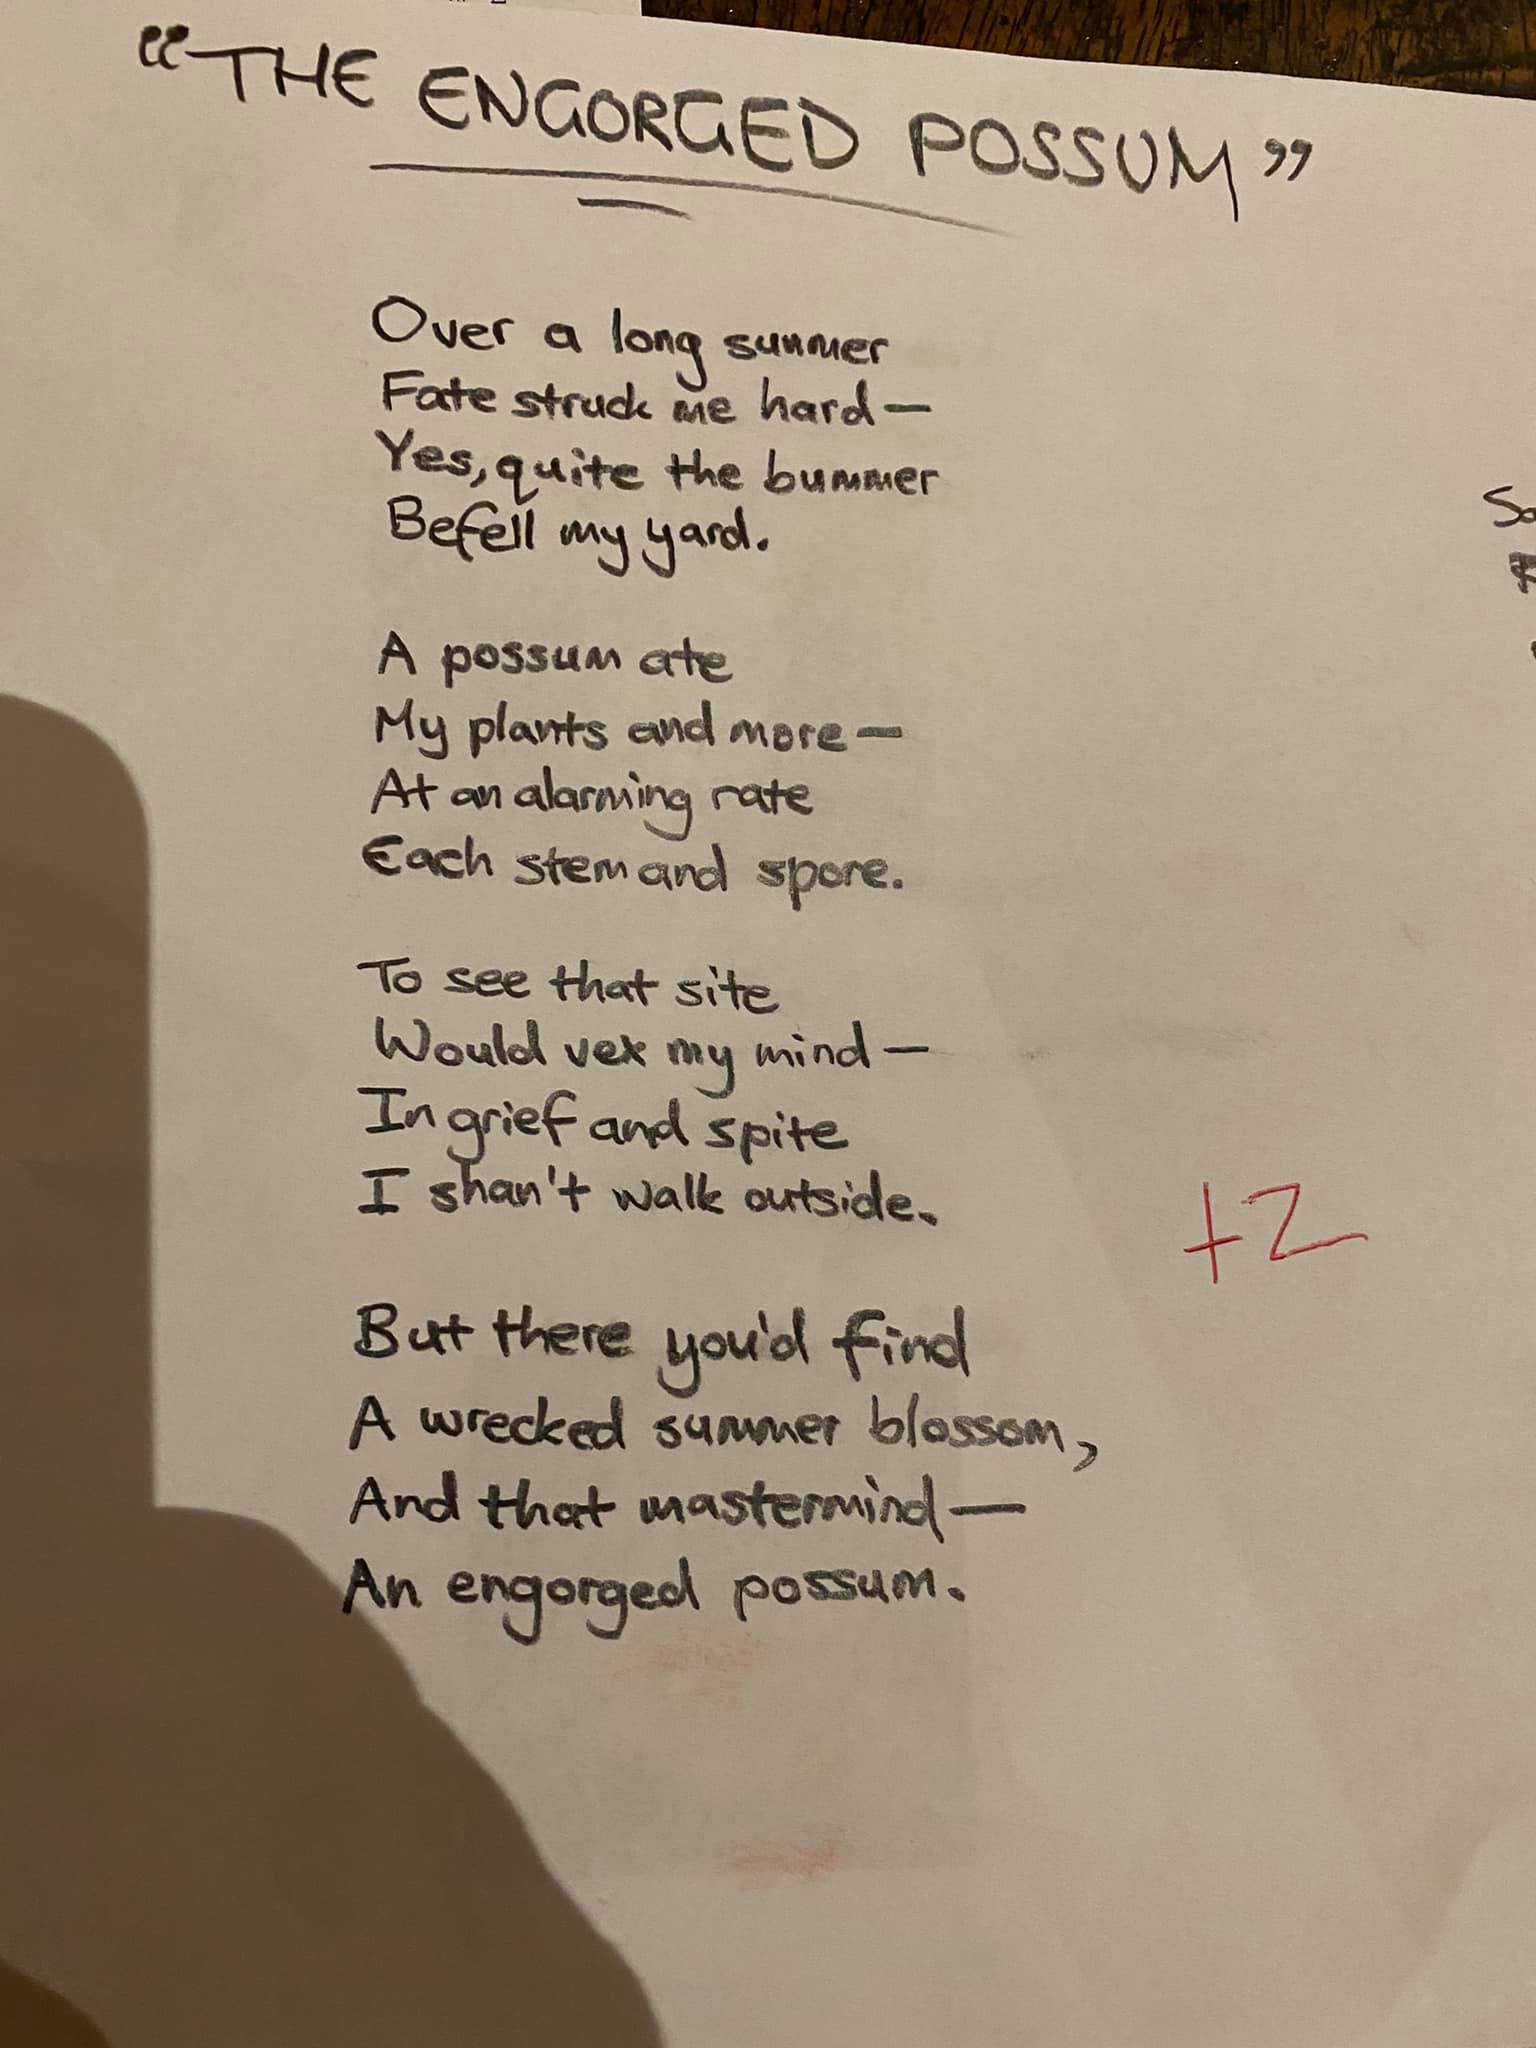 “THE ENGORGED POSSUM”
Over a long summer
Fate struck me hard—
Yes, quite the bummer
Befell my yard.
A possum ate
My plants and more—
At an alarming rate
Each stem and spore.
To see that site
Would vex my mind—
In grief and spite
I shan't walk outside.
+2
But there you'd find
A wrecked summer blossom,
And that mastermind—
An engorged possum.